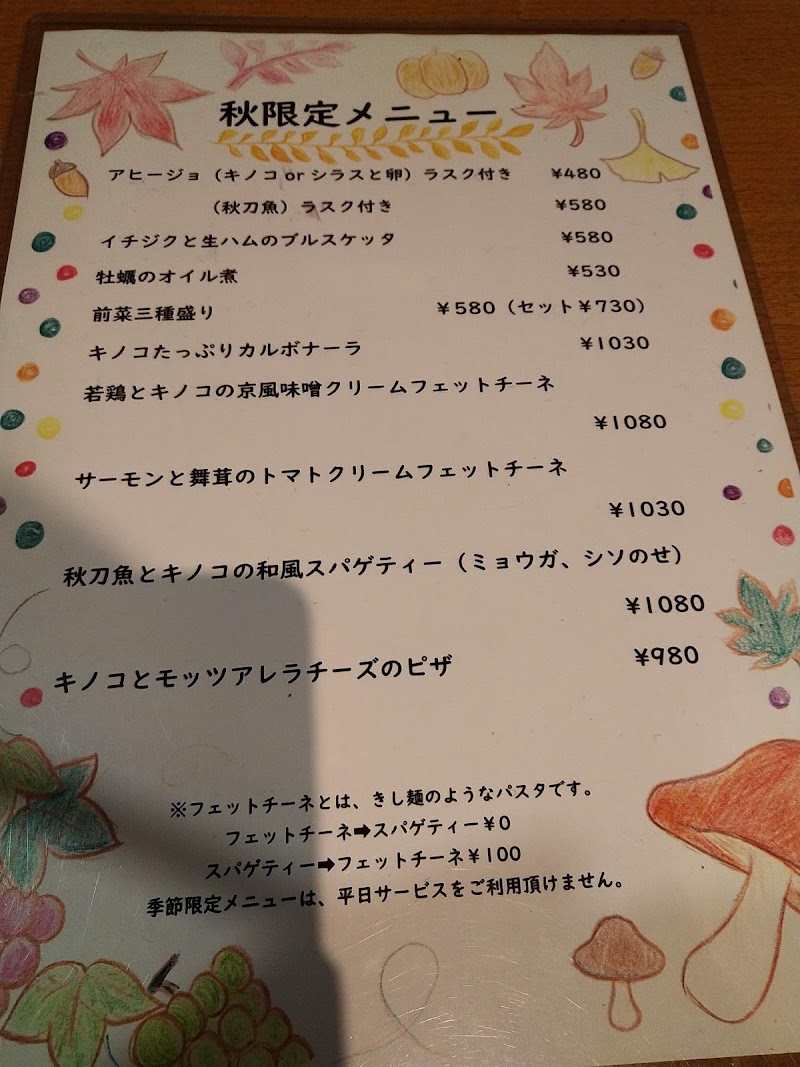 秋限定メニュー
アヒージョ（キノコorシラスと卵）ラスク付き ¥480
（秋刀魚）ラスク付き ¥580
イチジクと生ハムのブルスケッタ ¥580
牡蠣のオイル煮 ¥530
前菜三種盛り ¥580（セット¥730）
キノコたっぷりカルボナーラ ¥1030
若鶏とキノコの京風味噌クリームフェットチーネ
¥1080
サーモンと舞茸のトマトクリームフェットチーネ
¥1030
秋刀魚とキノコの和風スパゲティー（ミョウガ、シソのせ）
¥1080
キノコとモッツアレラチーズのピザ ¥980
※フェットチーネとは、きし麺のようなパスタです。
フェットチーネ➡スパゲティー¥0
スパゲティー➡フェットチーネ¥100
季節限定メニューは、平日サービスをご利用頂けません。